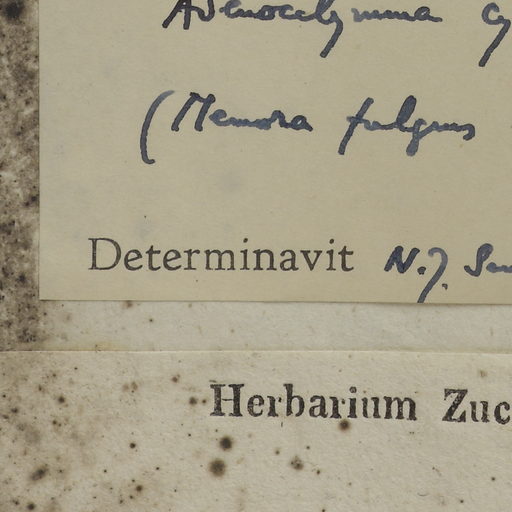 Adenocalymma
(Memora fulgens
Determinavit N.J. San
Herbarium Zuc